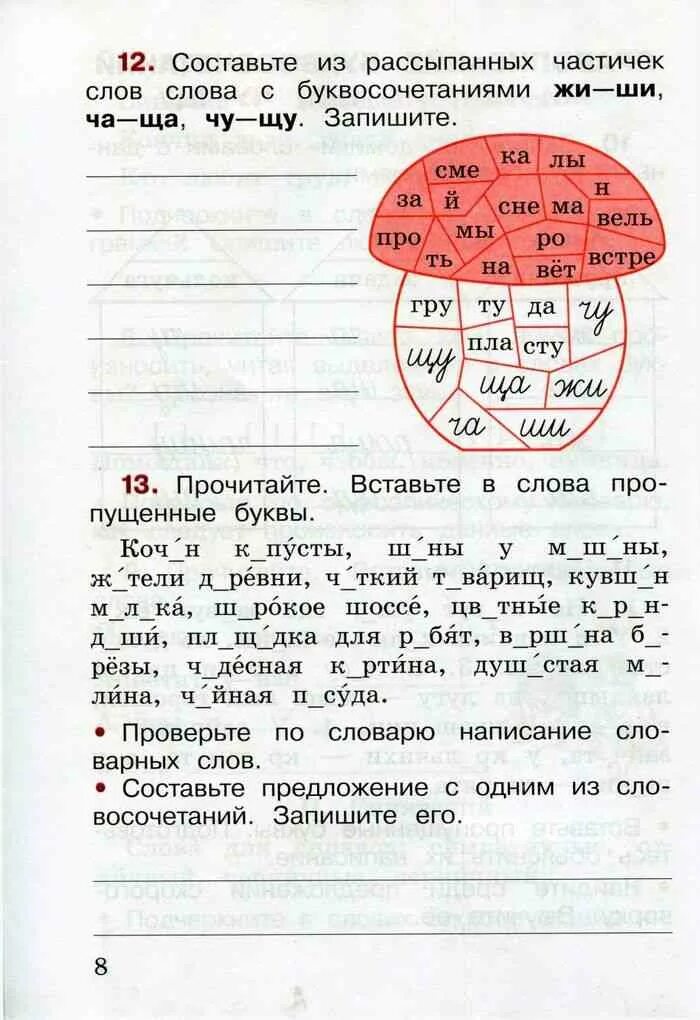 12. Составьте из рассыпанных частичек
слов слова с буквосочетаниями жи—ши,
ча—ща, чу—щу. Запишите.
сме ка лы
за й сне ма н вель
про мы ро
ть на вёт встре
гру ту да чу
щу пла сту
ща жи
ча ши
13. Прочитайте. Вставьте в слова про-
пущенные буквы.
Коч_́н к_пу́сты, ш_́ны у м_ш_́ны,
ж_́тели д_ре́вни, ч_́ткий т_ва́рищ, кувш_́н
м_л_ка́, ш_ро́кое шоссе́, цв_тны́е к_р_н-
д_ши́, пл_щ_́дка для р_бя́т, в_рш_́на б_-
рёзы, ч_де́сная к_рти́на, душ_́стая м_-
ли́на, ч_́йная п_су́да.
• Проверьте по словарю написание сло-
варных слов.
• Составьте предложение с одним из сло-
восочетаний. Запишите его.
8